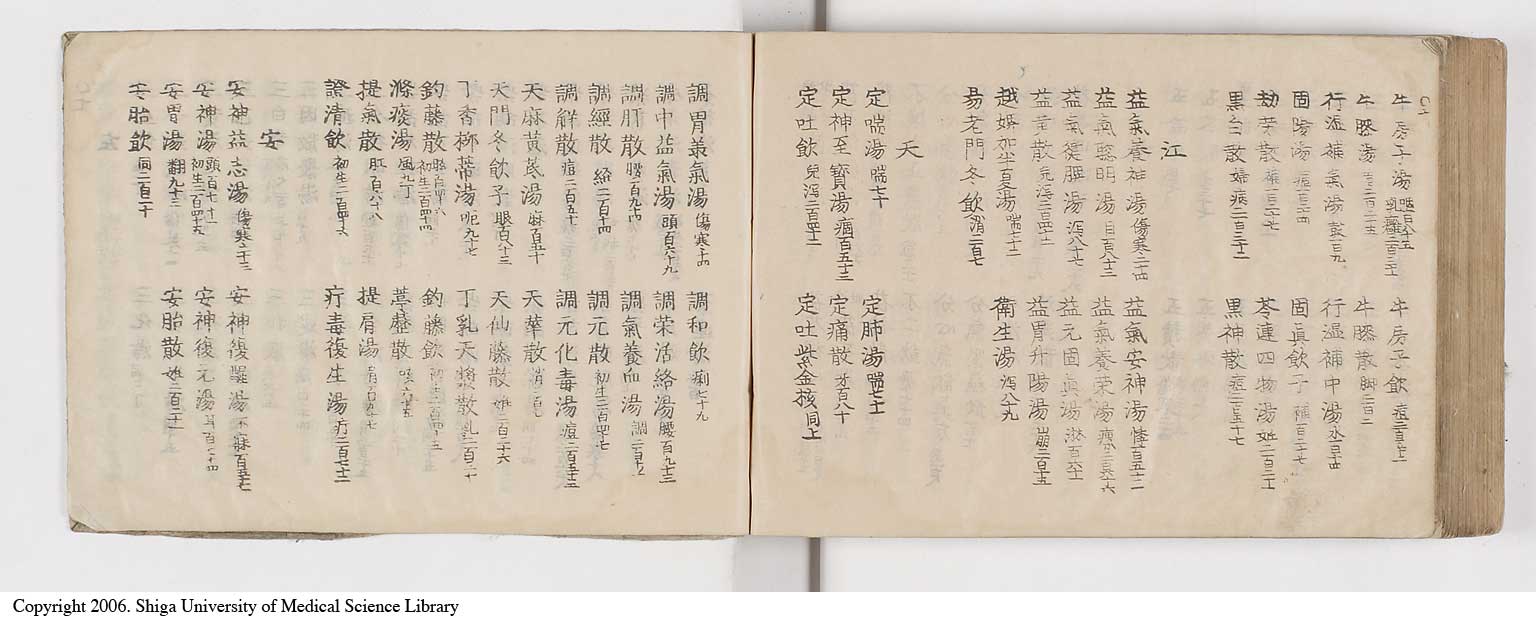 牛房子湯
牛房子飲
牛膝湯
牛膝散 脚二百二
行湿補氣湯
行湿補中湯
固陽湯
固眞飲子
劫労散
苓連四物湯
黒白散
黒神散
江
益氣養神湯 傷寒二十四
益氣安神湯
益氣聡明湯 目百六十二
益氣養荣湯
益氣健脾湯 瀉八十七
益元固眞湯 淋百六十
益黄散 兒瀉二百四十二
益胃升陽湯 崩二百十五
越婢加半夏湯 喘七十二
衛生湯 瀉八十九
易老門冬飲 消二百七
天
定喘湯 喘七十
定肺湯 喘七十一
定神至寳湯 癇百五十三
定痛散
定吐飲 兒瀉二百四十二
定吐紫金核 同上
調胃養氣湯 傷寒二十四
調和飲 痢七十九
調中益氣湯 頭百六十九
調荣活絡湯 腰百九十三
調肝散 腰百九十四
調氣養血湯
調經散 經二百十四
調元散 初生二百四十七
調解散 痘二百五十
調元化毒湯 痘二百五十五
天麻黄芪湯 麻百五十
天華散 消二百九
天門冬飲子 眼百八十三
天仙藤散 姙二百二十六
丁香柿蒂湯 呃九十七
丁乳天漿散 乳二百二十
釣藤散
釣藤飲
滌痰湯 風九丁
葶藶散 咳六十五
提氣散 肛百八十八
提肩湯 肩百九十七
證清飲 初生二百四十六
疔毒復生湯 疔二百七十二
安
安神益志湯 傷寒二十三
安神復醒湯 不寐百五十七
安神湯 頭百七十一 初生二百四十九
安神復元湯
安胃湯 翻九十三
安胎散 姙二百二十二
安胎飲 同二百二十